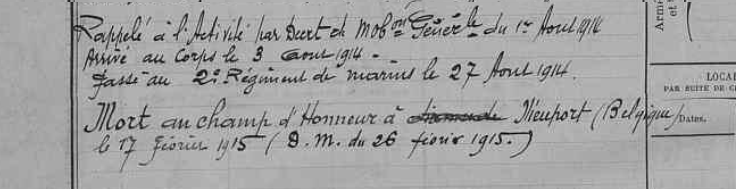 Rappelé à l'Activité par Decret de Mob.on Génér.le du 1er Aout 1914
Arrivé au Corps le 3 Aout 1914 -
Passé au 2e Régiment de marins le 27 Aout 1914.
Mort au champ d'Honneur à Nieuport (Belgique)
le 17 février 1915 (D.M. du 26 février 1915.)
Armé
et
LOCA
PAR SUITE DE C
Dates.